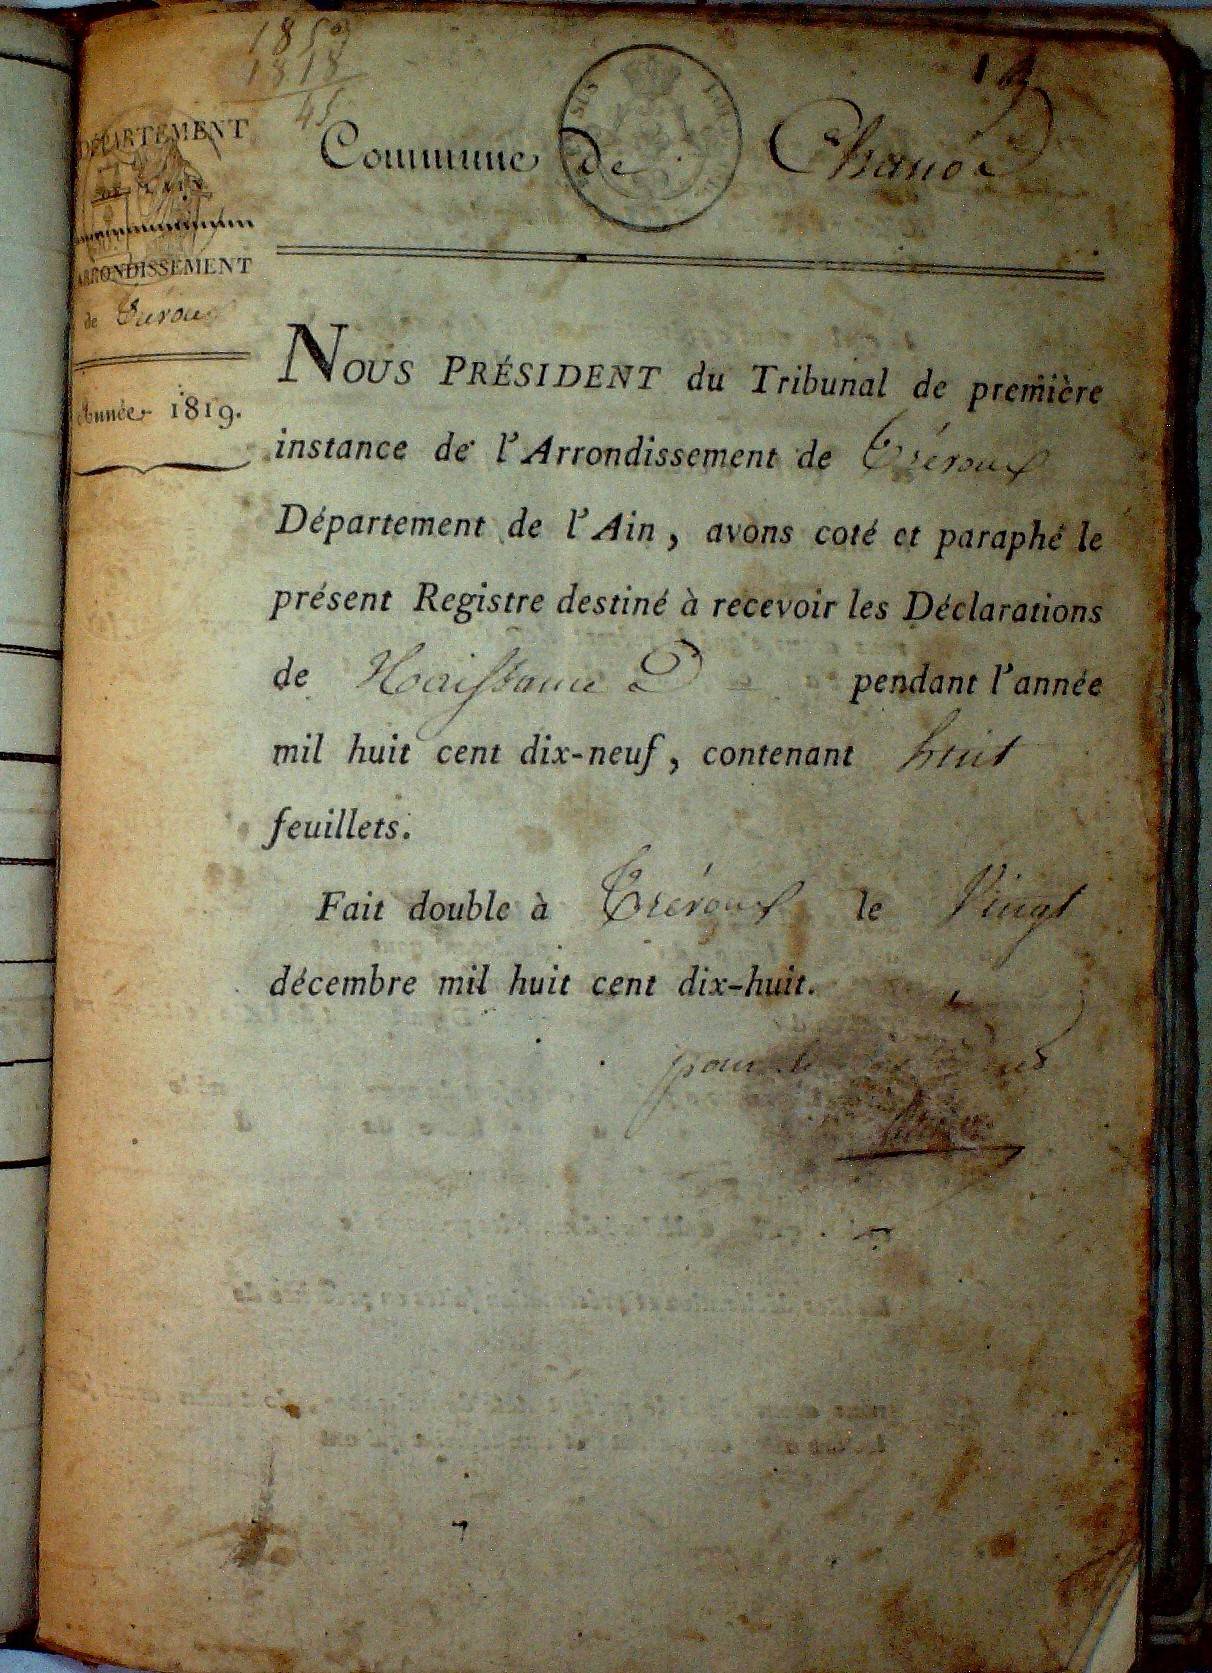 1859
1818
45
1
Commune de Chanoz
DÉPARTEMENT
DE L'AIN
ARRONDISSEMENT
de Trévoux
Année 1819.
NOUS PRÉSIDENT du Tribunal de première
instance de l'Arrondissement de Trévoux
Département de l'Ain, avons coté et paraphé le
présent Registre destiné à recevoir les Déclarations
de Naissance pendant l'année
mil huit cent dix-neuf, contenant huit
feuillets.
Fait double à Trévoux le Vingt
décembre mil huit cent dix-huit.
pour le